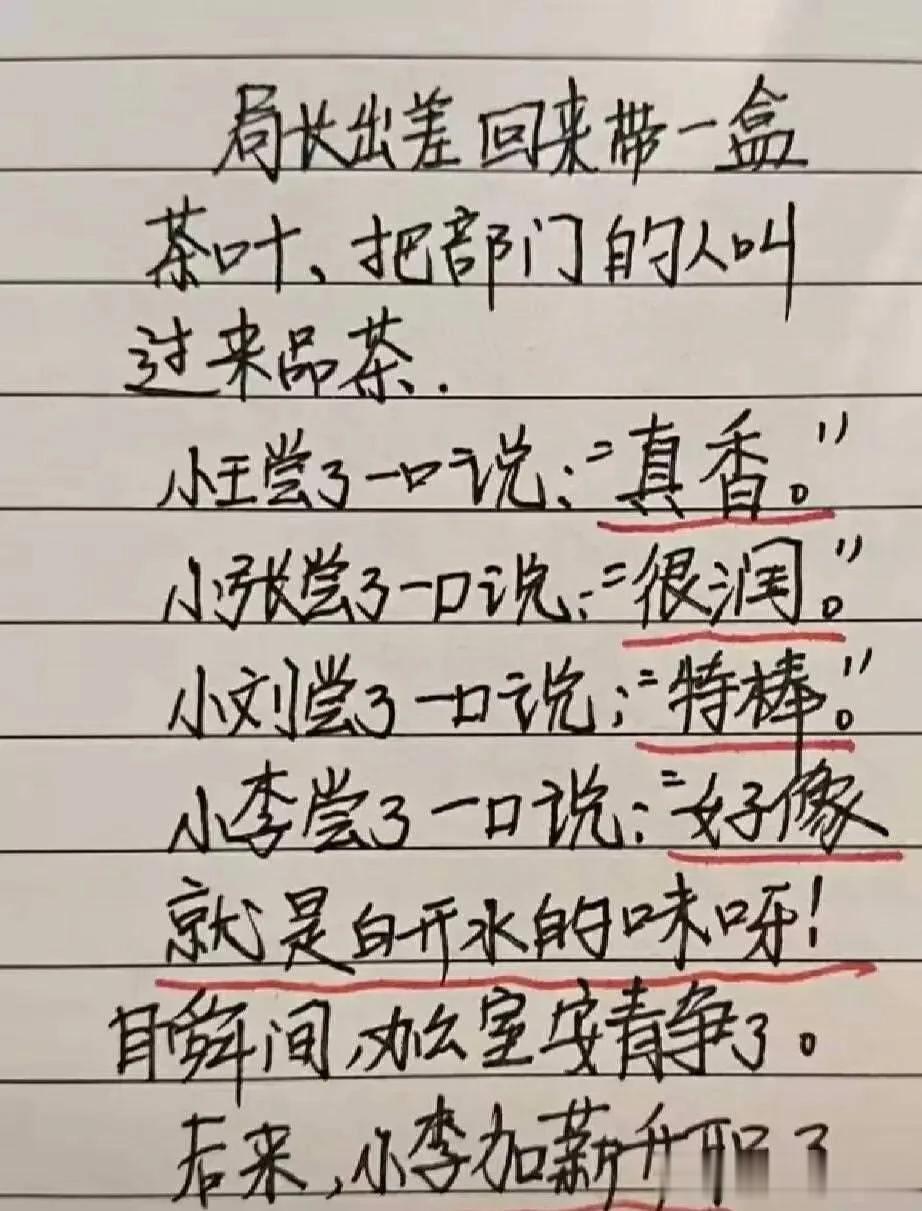 局长出差回来带一盒
茶叶、把部门的人叫
过来品茶.
小王尝了一口说:“真香。”
小张尝了一口说:“很润。”
小刘尝了一口说:“特棒。”
小李尝了一口说:“好像
就是白开水的味呀!
瞬间,办公室安静了。
后来,小李加薪升职了